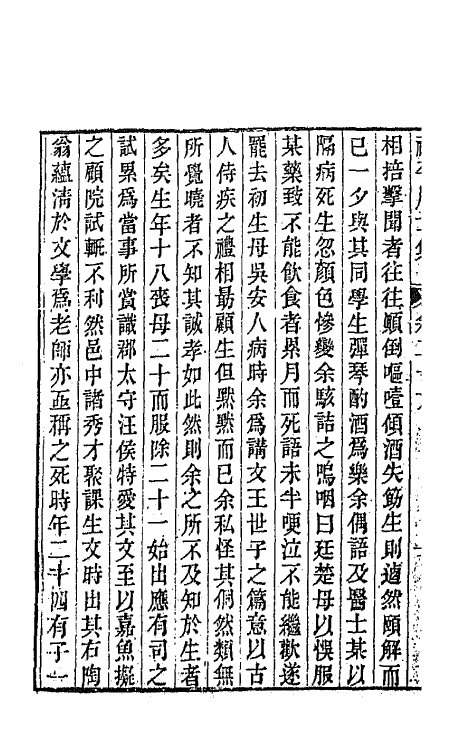 相掊擊聞者往往顚倒嘔噎傾酒失筯生則逌然頤解而
已一夕與其同學生彈琴酌酒爲樂余偶語及醫士某以
隔病死生忽顔色慘變余駭詰之嗚咽曰廷楚母以悞服
某藥致不能飮食者累月而死語未半哽泣不能繼歡遂
罷去初生母吳安人病時余爲講文王世子之篇意以古
人侍疾之禮相勗顧生但黙黙而已余私怪其侗然類無
所覺曉者不知其誠孝如此然則余之所不及知於生者
多矣生年十八喪母二十而服除二十一始出應有司之
試累爲當事所賞識郡太守汪侯特愛其文至以嘉魚擬
之顧院試輒不利然邑中諸秀才聚課生文時出其右陶
翁蘊淸於文學爲老師亦亟稱之死時年二十四有子一